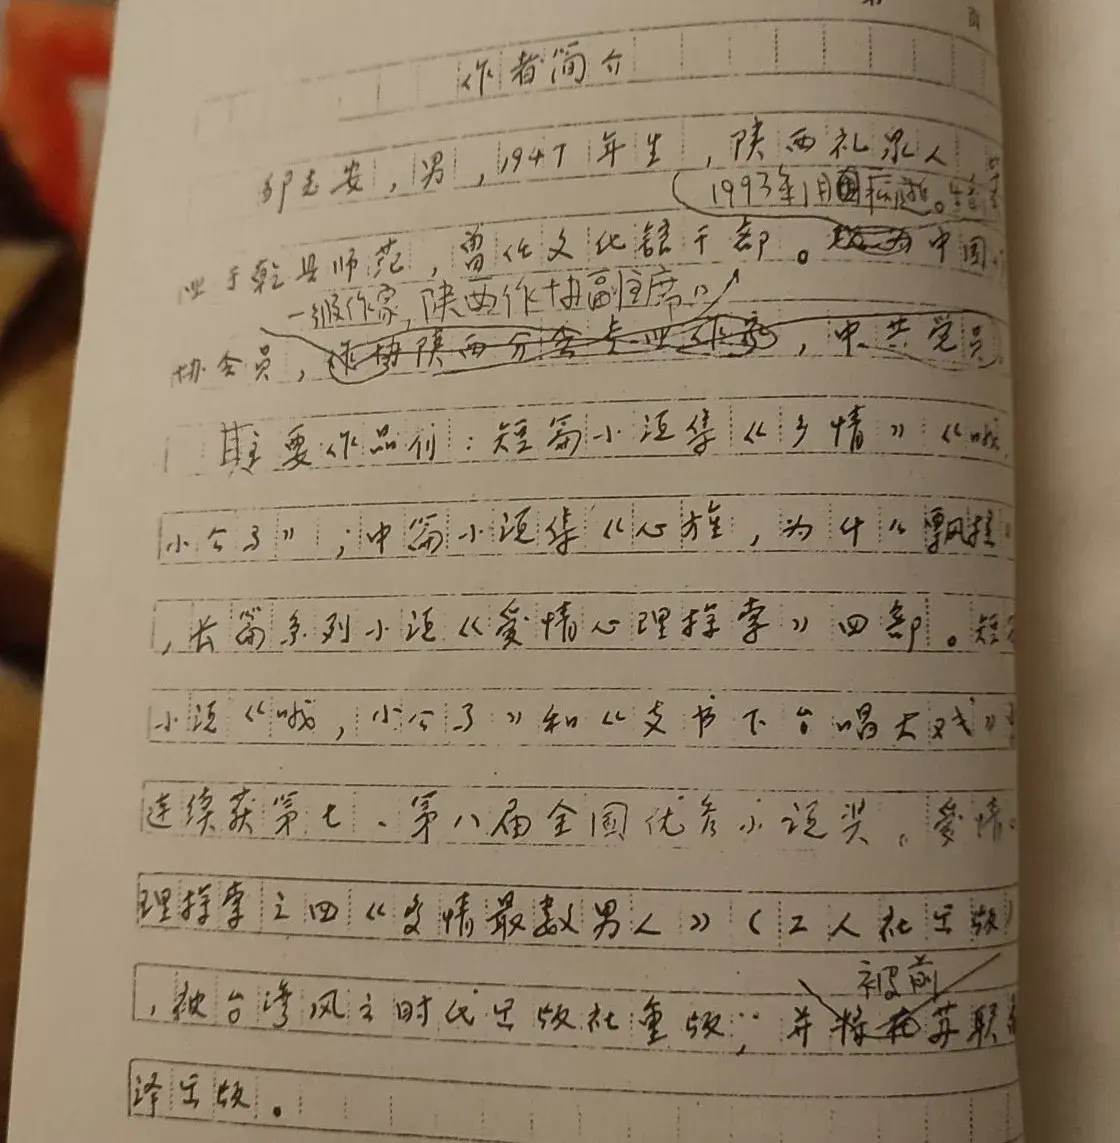 页
作者简介
邹志安，男，1947年生，陕西礼泉人
1993年1月因病逝。生前
业于乾县师范，曾任文化馆干部。中国
一级作家，陕西作协副主席。
协会员，作协陕西分会专业作家，中共党员
其主要作品列：短篇小说集《乡情》《哦
小公马》；中篇小说集《心旌，为什么飘摇
，长篇系列小说《爱情心理探索》四部。短
小说《哦，小公马》和《支书下台唱大戏》
连续获第七、第八届全国优秀小说奖。爱情
理探索之四《多情最数男人》（工人社出版）
被前
，被台湾风云时代出版社重版；并将在苏联
译出版。